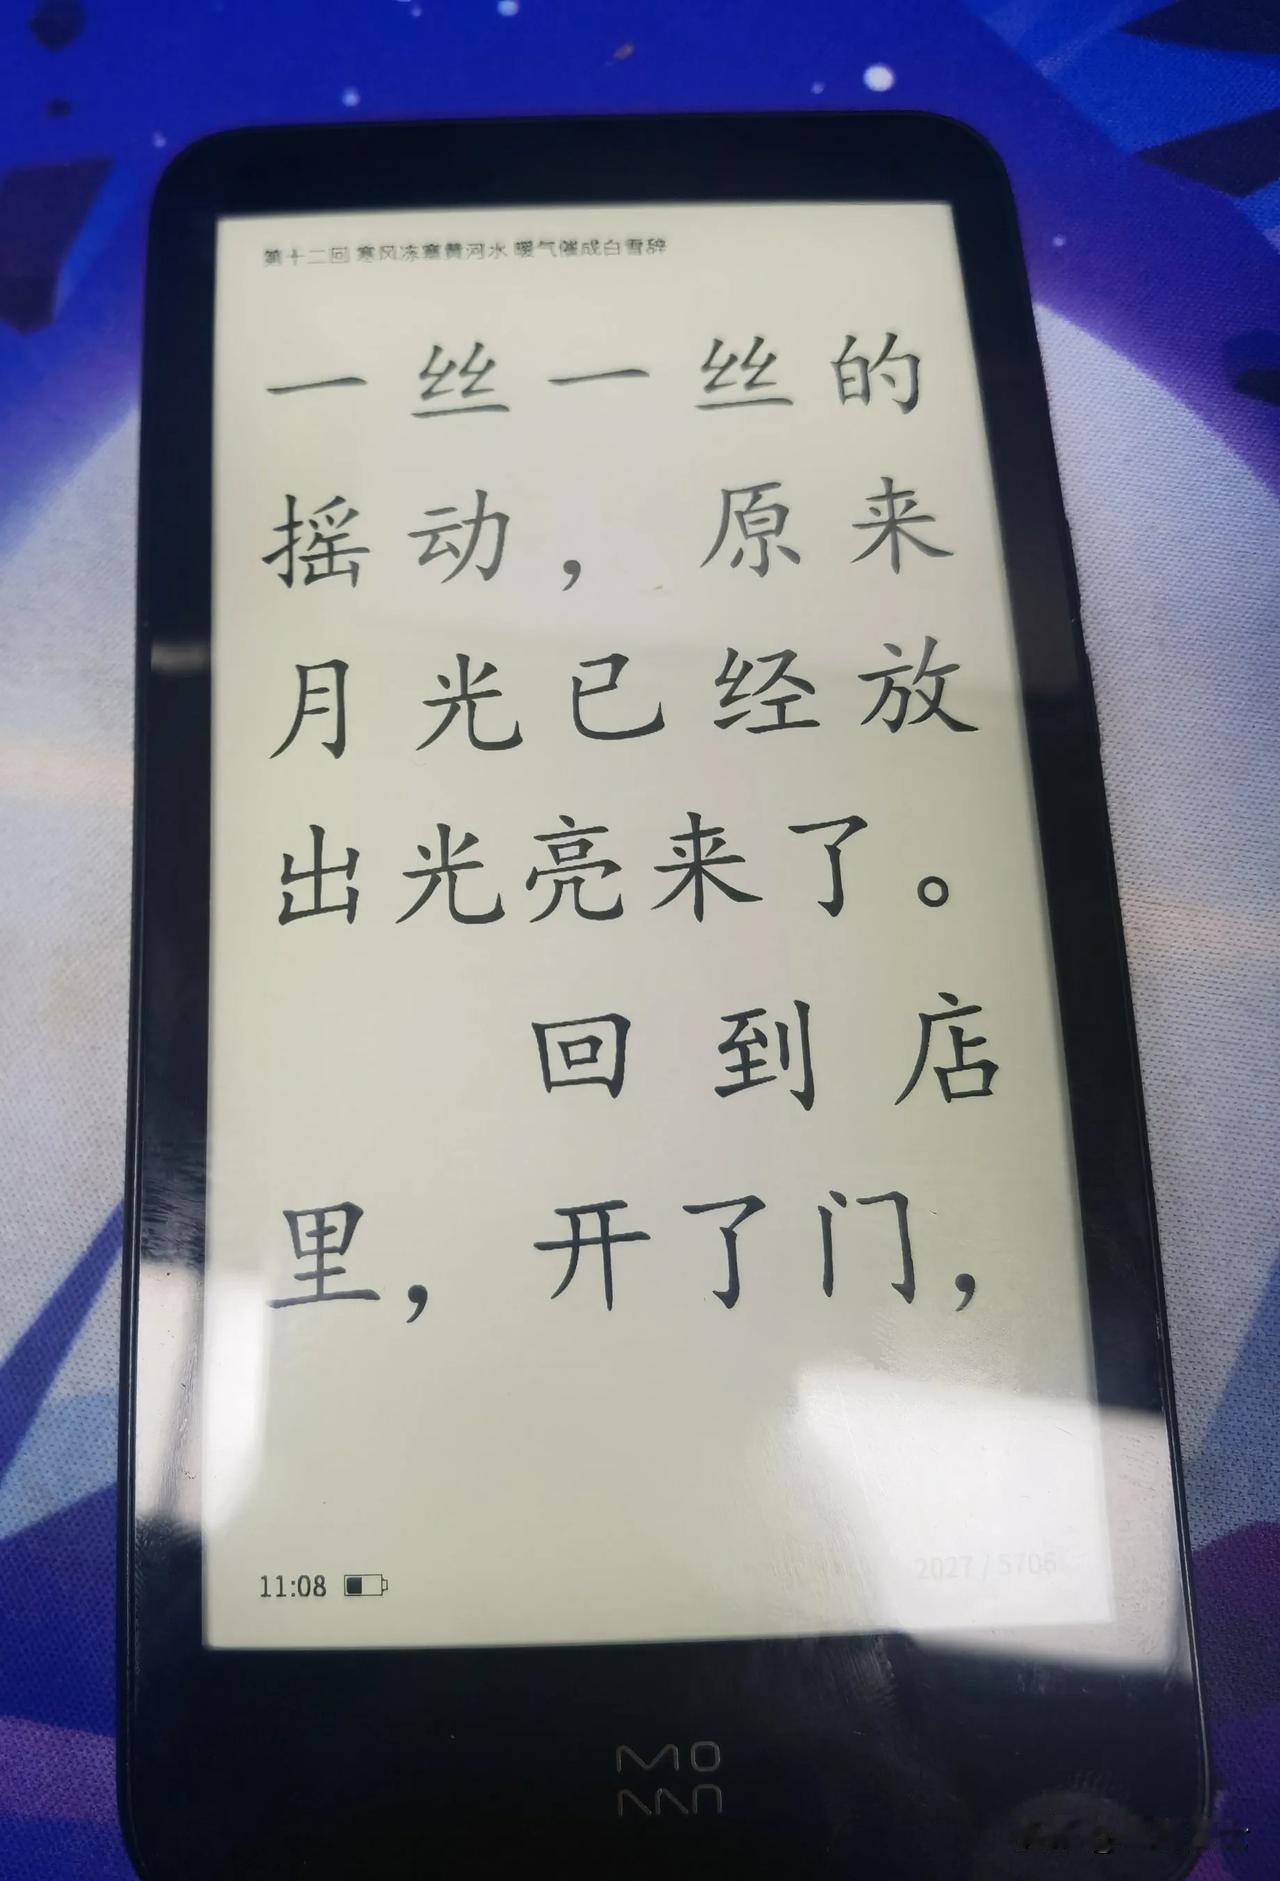 第十二回 寒风冻塞黄河水 暖气催成白雪辞
一丝一丝的
摇动，原来
月光已经放
出光亮来了。
回到店
里，开了门，
11:08
2027 / 5706